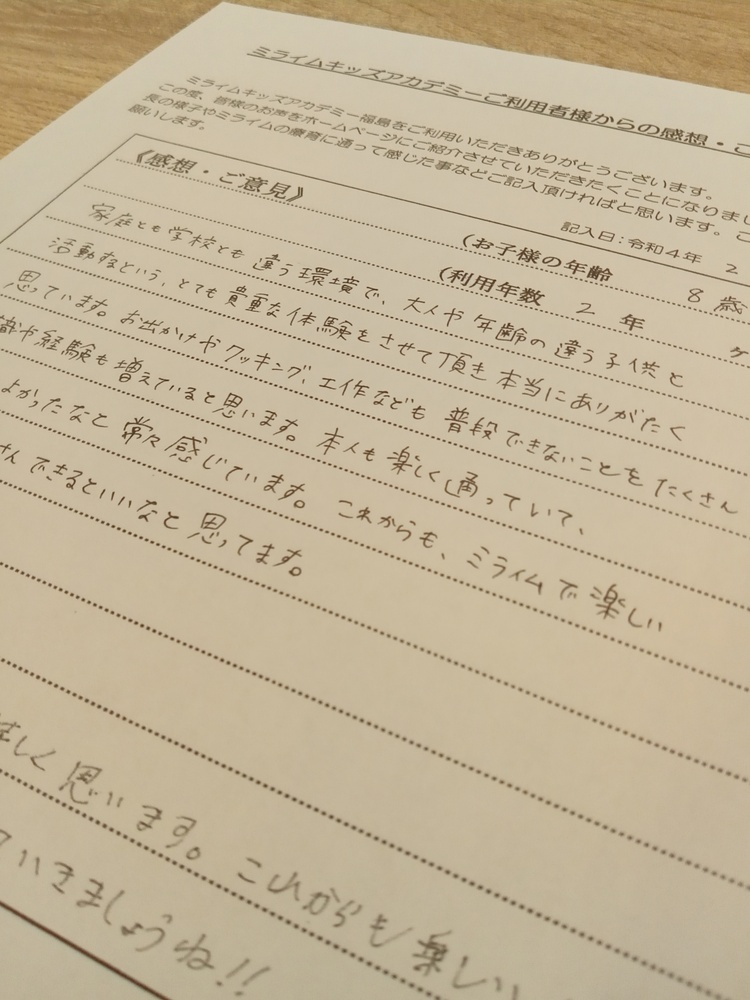 ミライムキッズアカデミーご利用者様からの感想・ご
ミライムキッズアカデミー福島をご利用いただきありがとうございます。
この度、皆様のお声をホームページにご紹介させていただきたくことになりまし
長の様子やミライムの療育に通って感じた事などご記入頂ければと思います。ご
願いします。
記入日：令和4年 2
《感想・ご意見》
(お子様の年齢 8 歳
(利用年数 2 年 ヶ
家庭とも学校とも違う環境で、大人や年齢の違う子供と
活動するという、とても貴重な体験をさせて頂き本当にありがたく
思ています。お出かけやクッキング、工作なども普段できないことをたくさん
識や経験も増えていると思います。本人も楽しく通っていて、
よかったなと常々感じています。これからも、ミライムで楽しい
さんできるといいなと思ってます。
しく思います。これからも楽しい
ていきましょうね!!